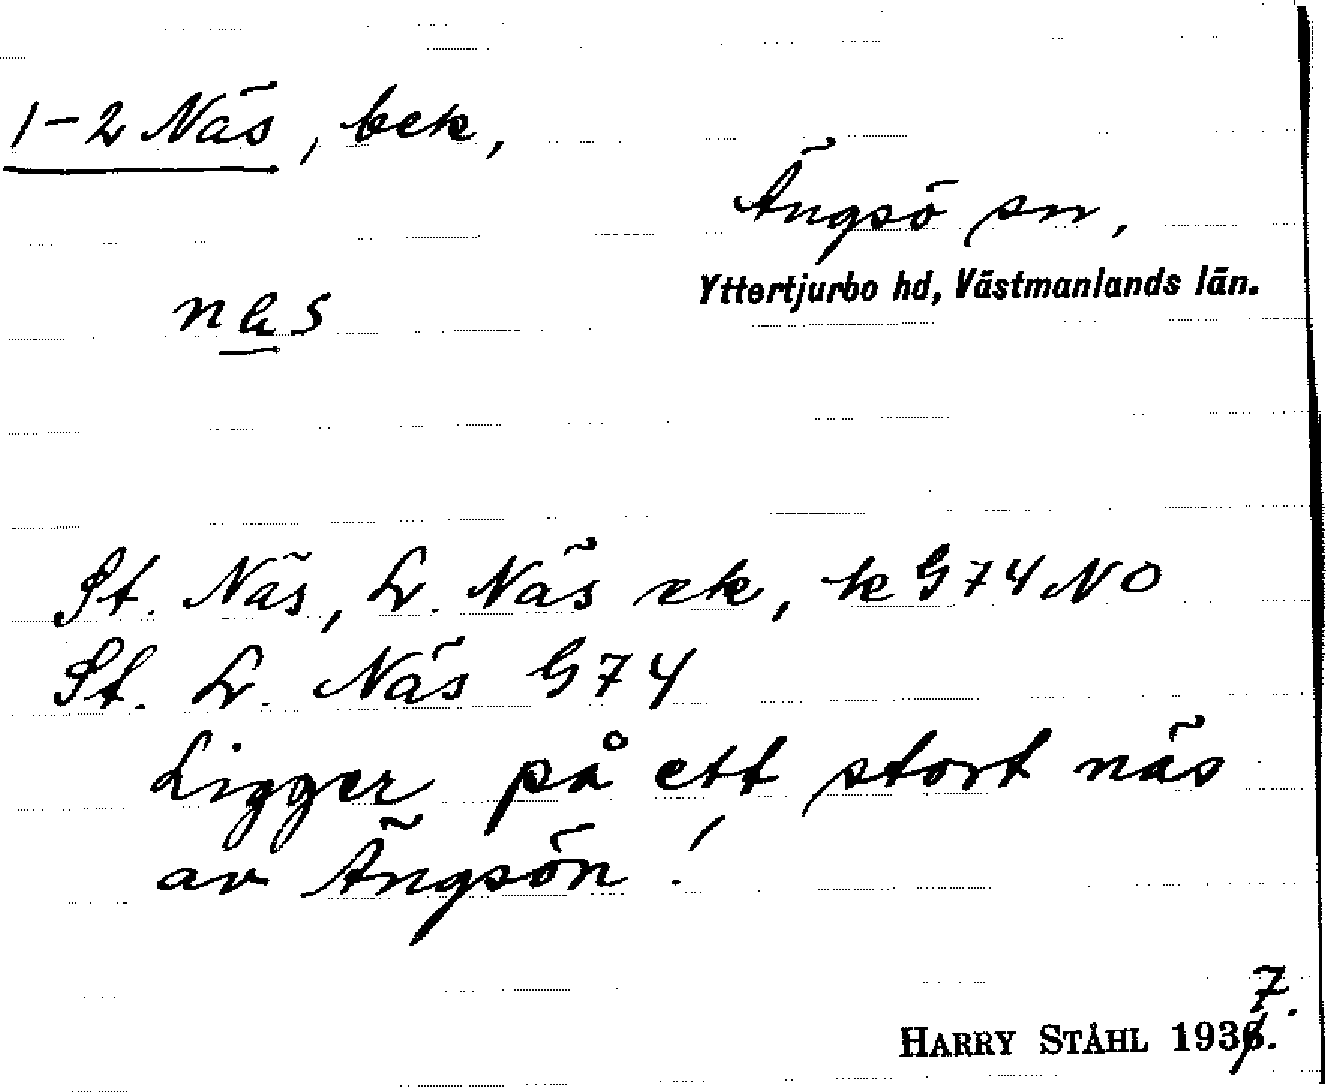 1-2 Näs, bek,
Ängsö sn,
Yttertjurbo hd, Västmanlands län.
St. Näs, L. Näs ek, k G74 NO
St. L. Näs G74
Ligger på ett stort näs
av Ängsön!
HARRY STÅHL 1937.